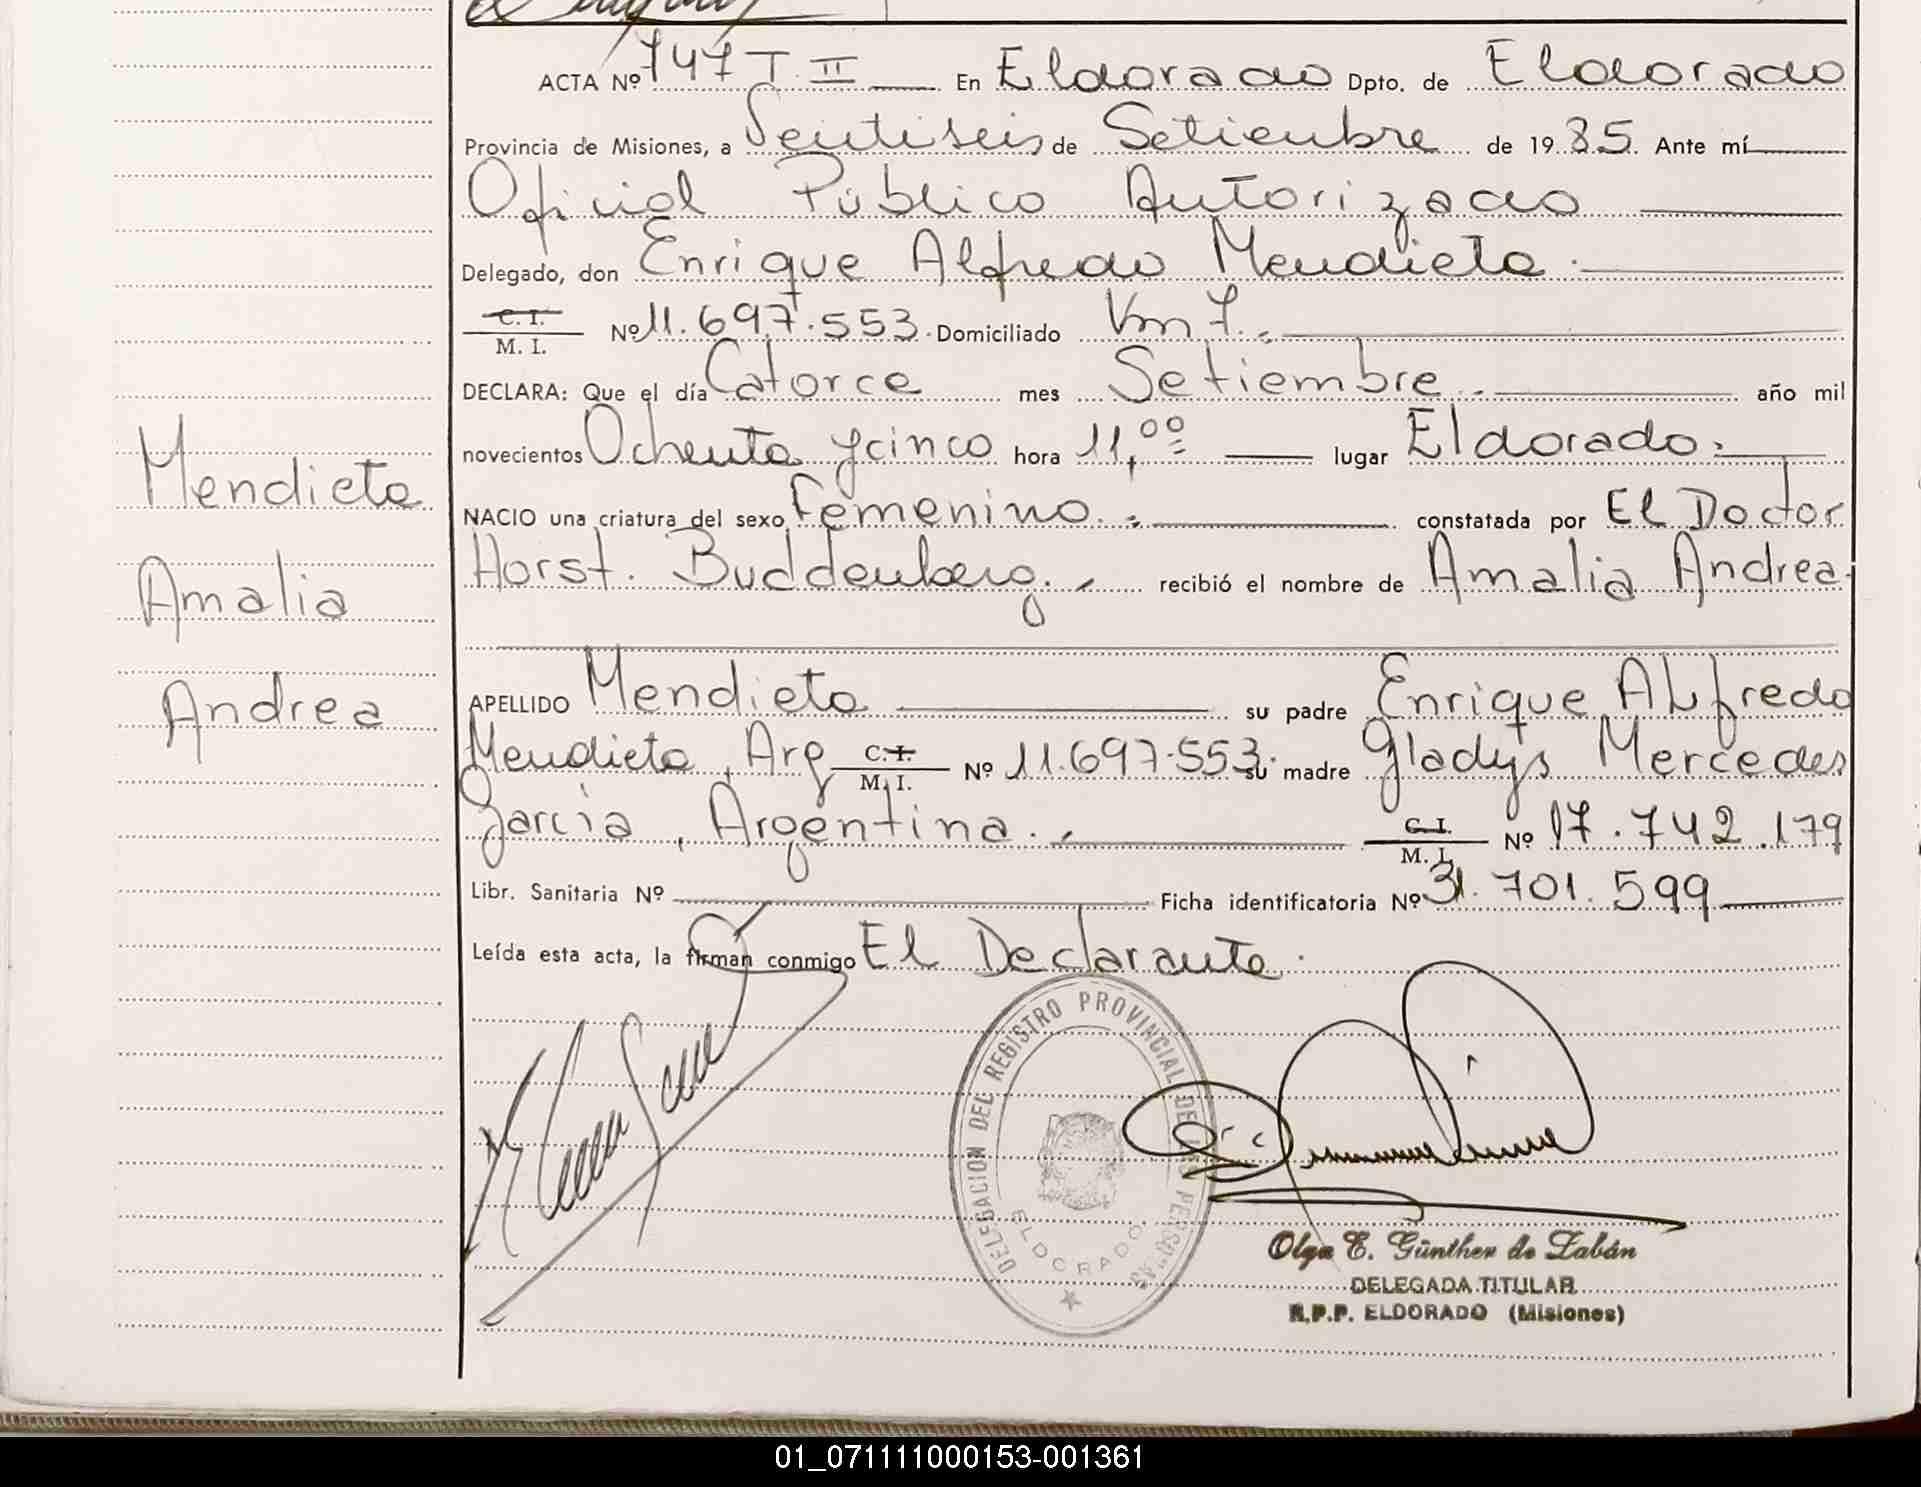 ACTA Nº 747 T. II En Eldorado Dpto. de Eldorado
Provincia de Misiones, a Veintiseis de Setiembre de 1985. Ante mí
Oficial Público Autorizado
Delegado, don Enrique Alfredo Mendieta.
C. I.
M. I. Nº 11.697.553. Domiciliado Km 7.
DECLARA: Que el día Catorce mes Setiembre año mil
novecientos Ochenta y cinco hora 11,00 lugar Eldorado.
NACIO una criatura del sexo Femenino. constatada por El Doctor
Horst. Buddenberg. recibió el nombre de Amalia Andrea.
APELLIDO Mendieta su padre Enrique Alfredo
Mendieta, Arg C. I. M. I. Nº 11.697.553. su madre Gladys Mercedes
Garcia, Argentina. C. I. M. I. Nº 17.742.179
Libr. Sanitaria Nº Ficha identificatoria Nº 31.701.599
Leída esta acta, la firman conmigo El Declarante.
Mendieta
Amalia
Andrea
DELEGACION DEL REGISTRO PROVINCIAL DE LAS PERSONAS
ELDORADO
Olga E. Günther de Zabán
DELEGADA TITULAR
R.P.P. ELDORADO (Misiones)
01_071111000153-001361